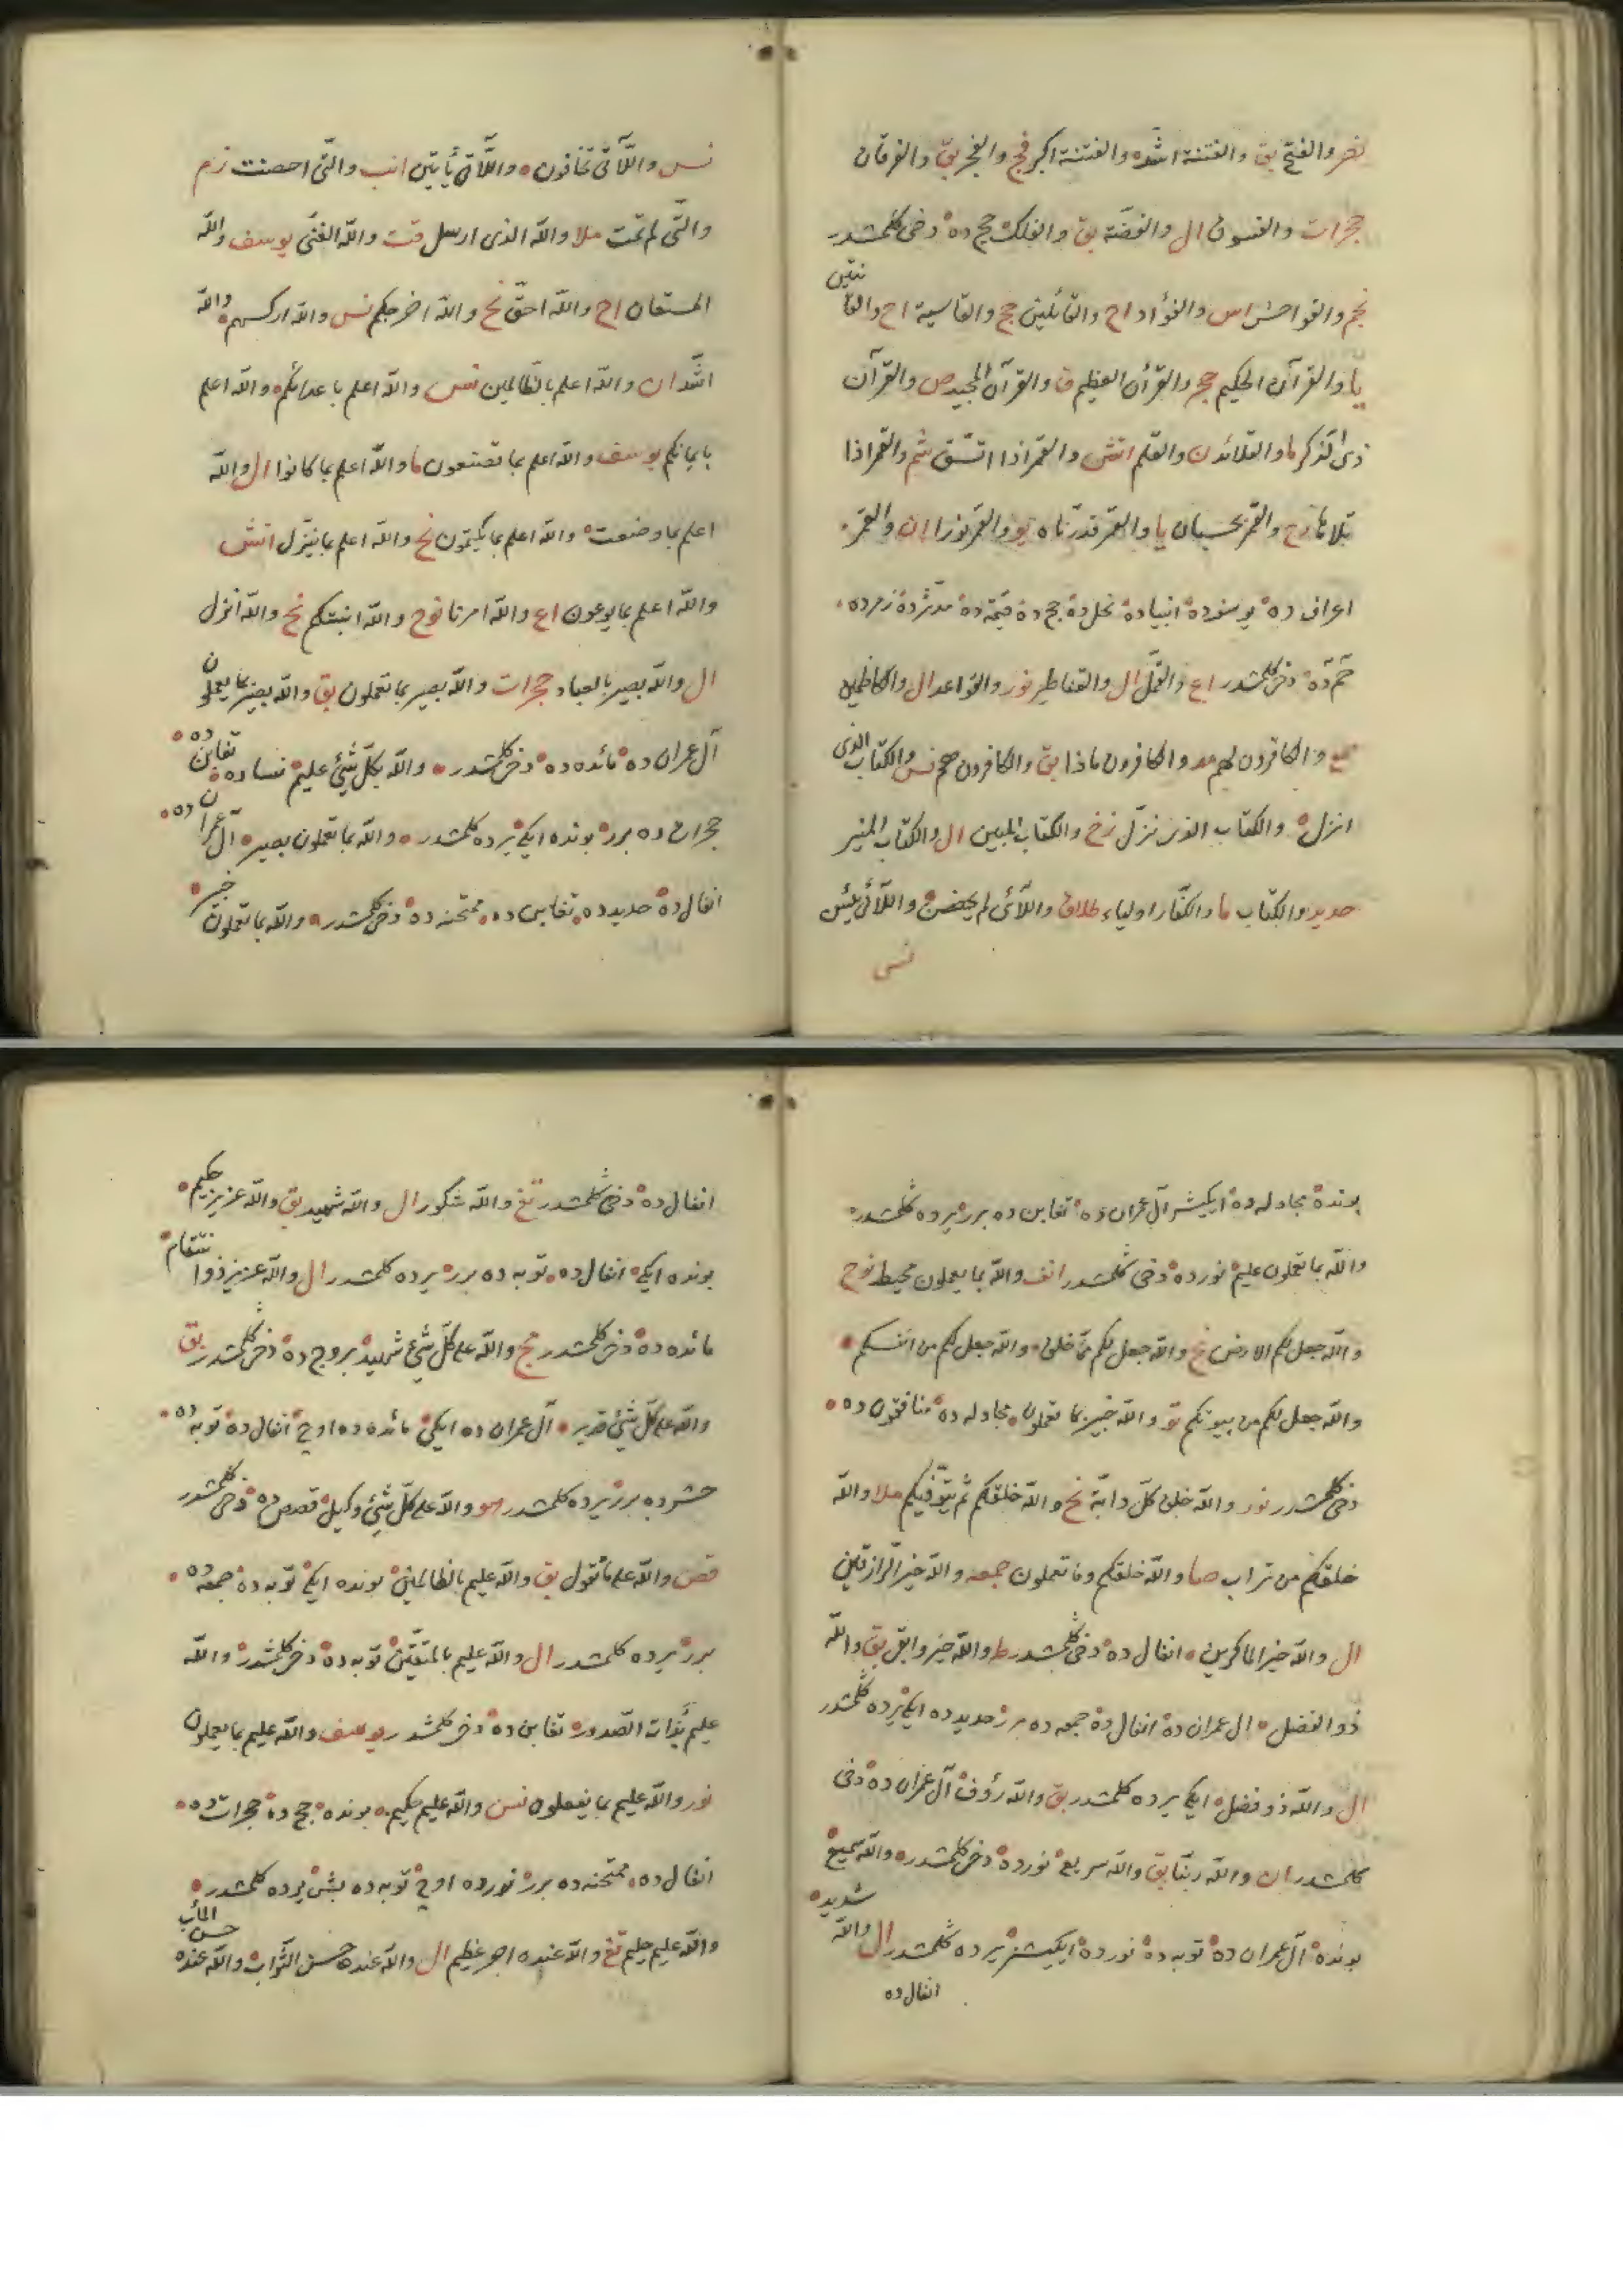 نصر والفتح بق والفتنة اشد والفتنة اكبر فج والفجر بق والفرقان
حجرات والفسوق ال والفضّة بق والفلك حج ده دخى كلمشدر
نجم والفواحش اس والفؤاد اح والقائلين حج والقاسية اح والقانتين
يا والقرآن الحكيم حجر والقرآن العظيم ق والقرآن المجيد ص والقرآن
ذى الذّكر ما والقلائد ن والقلم انش والقمر اذا اتّسق شم والقمر اذا
تلاها رح والقمر بحسبان يا والقمر قدّرناه يو والقمر نورا ان والقمر
اعراف ده يوسفده انبياده نحل ده حج ده قيمه ده مدثرده زمرده
حم ده دخى كلمشدر اع والقمّل ال والقناطير نور والقواعد ال والكاظمين
والكافرون لهم مد والكافرون ماذا بق والكافرون هم نس والكتاب الذى
انزل والكتاب الذى نزّل زخ والكتاب المبين ال والكتاب المنير
حديد والكتاب ما والكفّار اولياء طلاق واللّائى لم يحضن واللّائى يئسن
نس
نس واللّاتى تخافون واللّاتى يأتين انب والّتى احصنت زم
والّتى لم تمت ملا والله الذى ارسل قت والله الغنىّ يوسف والله
المستعان اح والله احقّ نح والله اخرجكم نس والله اركسهم والله
اشدّ ان والله اعلم بالظّالمين نس والله اعلم باعدائكم والله اعلم
بايمانكم يوسف والله اعلم بما تصفون ما والله اعلم بما كانوا ال والله
اعلم بما وضعت والله اعلم بما يكتمون نح والله اعلم بما ينزّل انش
والله اعلم بما يوعون اع والله امرنا نوح والله انبتكم نح والله انزل
ال والله بصير بالعباد حجرات والله بصير بما تعملون بق والله بصير بما يعملون
آل عمران ده مائده ده دخى كلمشدر والله بكلّ شئ عليم نساده تغابن ده
حجرات ده برر بونده ايكى يرده كلمشدر والله بما تعملون بصير آل عمران ده
انفال ده حديد ده تغابن ده ممتحنه ده دخى كلمشدر والله بما تعملون خبير
بونده مجادله ده ايكيشر آل عمران ده تغابن ده برر يرده كلمشدر
والله بما تعملون عليم نورده دخى كلمشدر انف والله بما يعملون محيط نوح
والله جعل لكم الارض نح والله جعل لكم ممّا خلق والله جعل لكم من انفسكم
والله جعل لكم من بيوتكم تو والله خبير بما تعملون مجادله ده منافقون ده
دخى كلمشدر نور والله خلق كلّ دابّة نح والله خلقكم ثم يتوفّيكم ملا والله
خلقكم من تراب صا والله خلقكم وما تعملون جمعه والله خير الرّازقين
ال والله خير الماكرين انفال ده دخى كلمشدر ط والله خير وابقى بق والله
ذو الفضل ال عمران ده انفال ده جمعه ده برر حديد ده ايكى يرده كلمشدر
ال والله ذو فضل ايكى يرده كلمشدر بق والله رؤف آل عمران ده دخى
كلمشدر ان والله ربّنا بق والله سريع نورده دخى كلمشدر والله سميع
بونده آل عمران ده توبه ده نورده ايكيشر يرده كلمشدر ال والله شديد
انفال ده
انفال ده دخى كلمشدر تغ والله شكور ال والله شهيد بق والله عزيز حكيم
بونده ايكى انفال ده توبه ده برر يرده كلمشدر ال والله عزيز ذو انتقام
مائده ده دخى كلمشدر مج والله على كلّ شئ شهيد بروج ده دخى كلمشدر بق
والله على كلّ شئ قدير آل عمران ده ايكى مائده ده اوچ انفال ده توبه ده
حشرده برر يرده كلمشدر هو والله على كلّ شئ وكيل قصص ده دخى كلمشدر
قص والله على ما نقول بق والله عليم بالظالمين بونده ايكى توبه ده جمعه ده
برر يرده كلمشدر ال والله عليم بالمتّقين توبه ده دخى كلمشدر والله
عليم بذات الصّدور تغابن ده دخى كلمشدر يوسف والله عليم بما يعملون
نور والله عليم بما يفعلون نس والله عليم حكيم بونده حج ده حجرات ده
انفال ده ممتحنه ده برر نورده اوچ توبه ده بش يرده كلمشدر
والله عليم حليم تغ والله عنده اجر عظيم ال والله عنده حسن الثّواب والله عنده حسن المأب